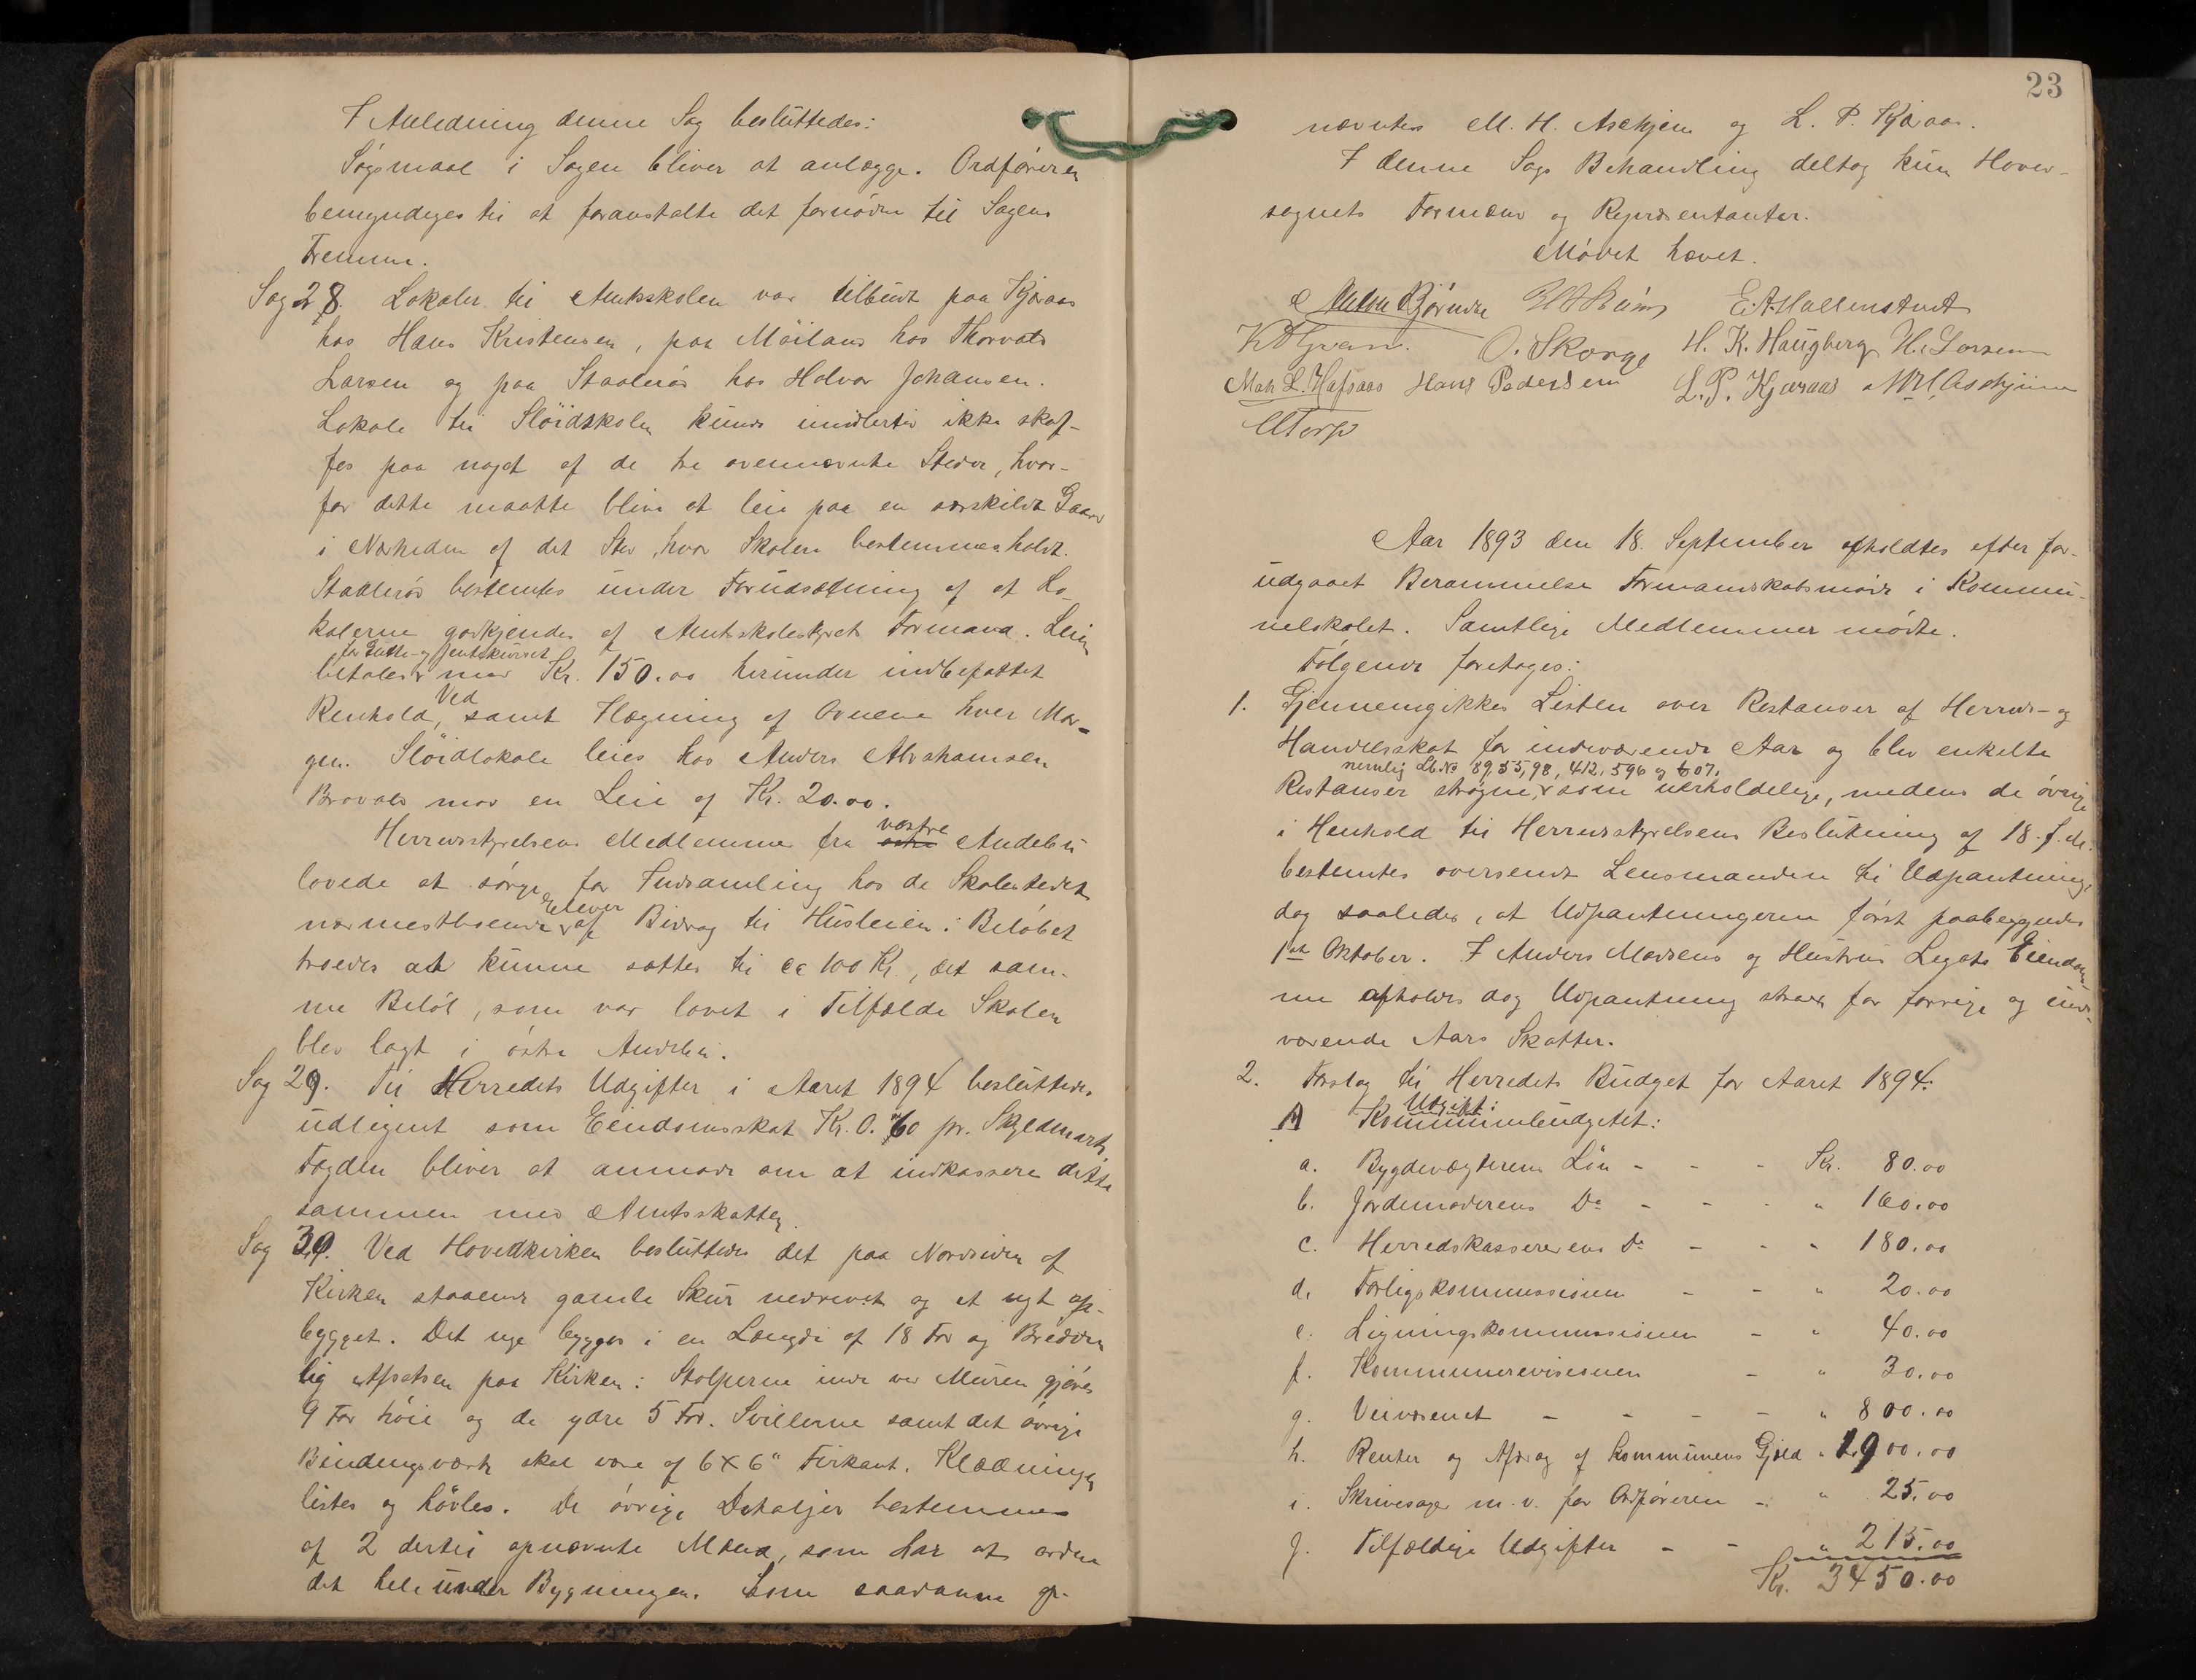 I Anledning denne Sag besluttedes:
Søgsmaal i Sagen bliver at anlægge. Ordføreren
bemyndiges til at foranstalte det fornødne til Sagens
Fremme.
Sag 28. Lokaler til Amtsskolen var tilbudt paa Kjæraas
hos Hans Kristensen, paa Møiland hos Thorvald
Larsen og paa Staalerød hos Halvor Johansen.
Lokale til Sløidskolen kunde imidlertid ikke skaf-
fes paa noget af de tre ovennævnte Steder, hvor-
for dette maatte blive at leie paa en særskildt Gaard
i Nærheden af det Sted, hvor Skolen bestemmes holdt.
Staalerød bestemtes under Forudsætning af at Lo-
kalerne godkjendes af Amtsskolestyrets Formand. Leien
for Gutte- og Jentekurset
betales med Kr. 150.00 herunder indbefattet
Ved
Renhold, samt Ilægning af Ovnene hver Mor-
gen. Sløidlokale leies hos Anders Abrahamsen
Bravald mod en Leie af Kr. 20.00.
vestre
Herredsstyrelsens Medlemmer fra østre Andebu
lovede at sørge for Indsamling hos de Skolestedet
Elever
nærmestboende af Bidrag til Husleien: Beløbet
troedes at kunne sættes til ca 100 Kr., det sam-
me Beløb, som var lovet i Tilfælde Skolen
blev lagt i østre Andebu.
Sag 29. Til Herredets Udgifter i Aaret 1894 besluttedes
udlignet som Eiendomsskat Kr. 0.60 pr. Skyldmark,
Fogden bliver at anmode om at indkassere dette
sammen med Amtsskatten.
Sag 30. Ved Hovedkirken besluttedes det paa Nordsiden af
Kirken staaende gamle Skur nedrevet og et nyt op-
bygget. Det nye bygges i en Længde af 18 Fod og Bredden
lig Afsatsen paa Kirken: Stolperne inde ved Muren gjøres
9 Fod høie og de ydre 5 Fod. Svillerne samt det øvrige
Bindingsværk skal være af 6 x 6" Firkant. Klædningen
listes og høvles. De øvrige Detaljer bestemmes
af 2 dertil opnævnte Mænd, som har at ordne
det hele under Bygningen. Som saadanne op-
23
nævntes M. H. Askjem og L. P. Kjæraas.
I denne Sags Behandling deltog kun Hoved-
sognets Formænd og Repræsentanter.
Mødet hævet.
Anton Bjørndal E. A. Møllenstad
O. Skorge H. K. Haugberg H. Larsen
Math. L. Hafsaas Hans Pedersen L. P. Kjæraas M. H. Aschjem
Torp
Aar 1893 den 18. September afholdtes efter for-
udgaaet Berammelse Formandskabsmøde i Kommu-
nelokalet. Samtlige Medlemmer mødte.
Følgende foretoges:
1. Gjennemgikkes Listen over Restanser af Herreds- og
Handelsskat for indeværende Aar og blev enkelte
nemlig Lb. No 89, 55, 98, 412, 596 og 607.
Restanser strøgne, som uerholdelige, medens de øvrige
i Henhold til Herredsstyrelsens Beslutning af 18. f. M.
bestemtes oversendt Lensmanden til Udpantning,
dog saaledes, at Udpantningerne først paabegyndes
1ste Oktober. I Anders Madsens og Hustrus Legats Eiendom-
me afholdes dog Udpantning strax for forrige og inde-
værende Aars Skatter.
2. Forslag til Herredets Budget for Aaret 1894.
Udgift:
A Kommunebudgetet:
a. Bygdevægterens Løn - - - Kr. 80.00
b. Jordemoderens Do - - - " 160.00
c. Herredskassererens Do - - " 180.00
d. Forligskommissionen - - " 20.00
e. Ligningskommissionen - " 40.00
f. Kommunerevisionen - " 30.00
g. Veivæsenet - - - - " 800.00
h. Renter og Afdrag af Kommunens Gjæld " 1900.00
i. Skrivesager m. v. for Ordføreren - " 25.00
j. Tilfældige Udgifter - - " 215.00
Kr. 3450.00